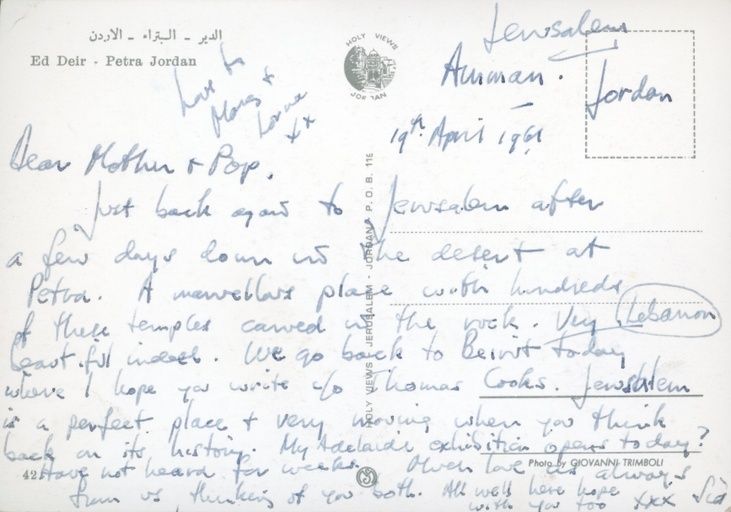 الدير - البتراء - الاردن
Ed Deir - Petra Jordan
HOLY VIEWS
JORDAN
Jerusalem
Amman.
Jordan
19th April 1961
Love to
+
Lorna
xx
Dear Mother + Pop,
Just back again to Jerusalem after
a few days down in the desert at
Petra. A marvellous place with hundreds
of these temples carved in the rock. Very
Lebanon
beautiful indeed. We go back to Beirut today
where I hope you write c/o Thomas Cooks. Jerusalem
is a perfect place + very moving when you think
back on its history. My Adelaide exhibition opens today?
Have not heard for weeks. love as always
from us, thinking of you both. All well here hope
with you too xxx Sid
HOLY VIEWS - JERUSALEM - JORDAN P.O.B. 115
42
Photo by GIOVANNI TRIMBOLI